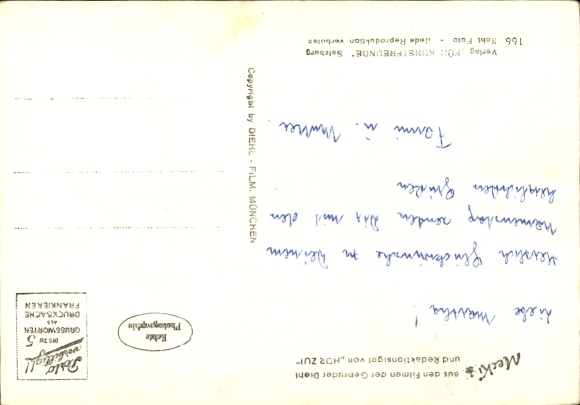 Mecki
aus den Filmen der Gebrüder Diehl
und Redaktionsigel von „HÖR ZU!"
Liebe
Herzlich Glückwünsche zu Deinem
Namenstag senden Dir mit den
herzlichsten Grüßen
u.
Verlag „FÜR KUNSTFREUNDE", Salzburg
166 Echt Foto - Jede Reproduktion verboten
Copyright by DIEHL - FILM, MÜNCHEN
Echte
Photographie
Porto
BIS ZU 5
GRUSSWORTEN
ALS
DRUCKSACHE
FRANKIEREN